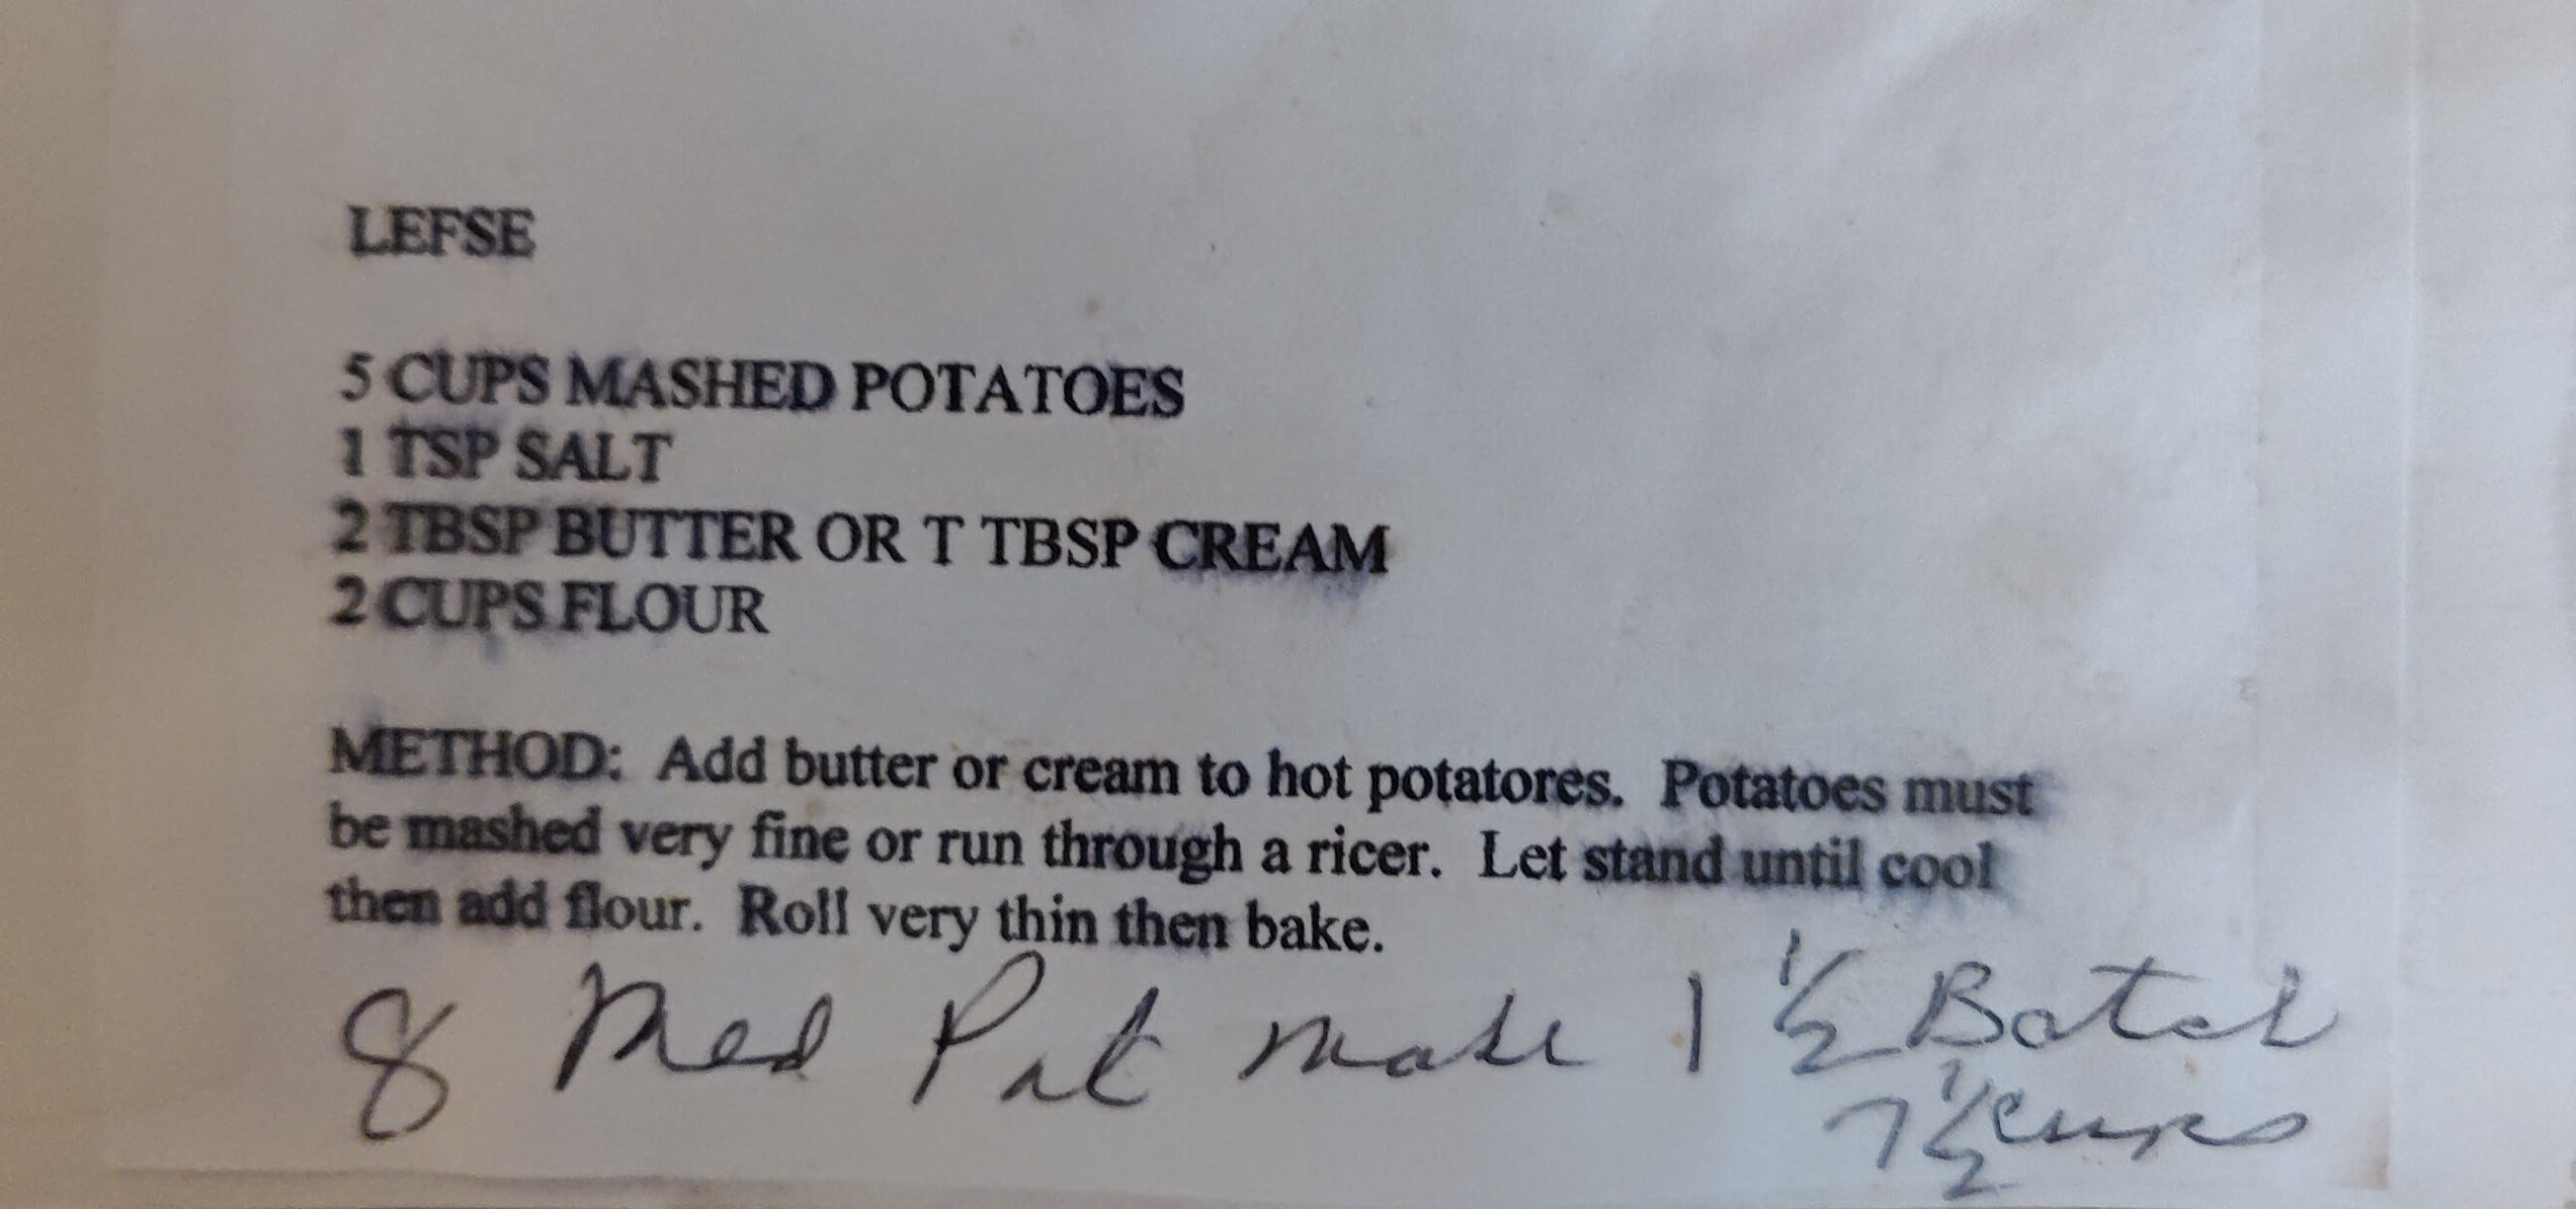 LEFSE
5 CUPS MASHED POTATOES
1 TSP SALT
2 TBSP BUTTER OR T TBSP CREAM
2 CUPS FLOUR
METHOD: Add butter or cream to hot potatores. Potatoes must
be mashed very fine or run through a ricer. Let stand until cool
then add flour. Roll very thin then bake.
8 Med Pot make 1 1/2 Batch
7 1/2 cups